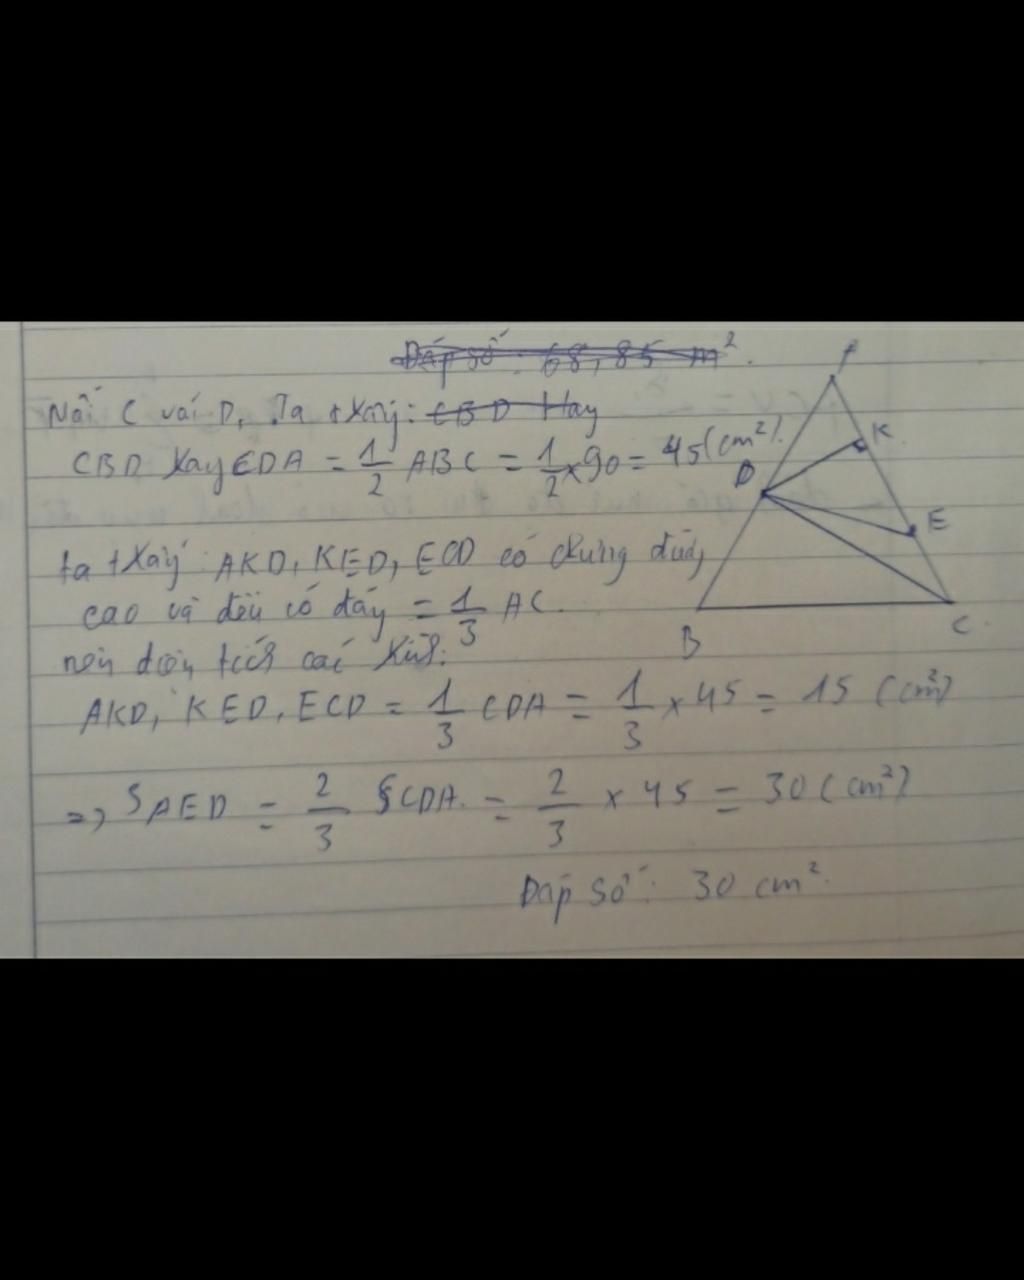 Đáp số: 68,85 m².
Nối C với D. Ta thấy: CBD Hay
CBD hay CDA = 1/2 ABC = 1/2 x 90 = 45 (cm²).
ta thấy: AKD, KED, ECD có chung đường
cao và đều có đáy = 1/3 AC.
nên diện tích các hình:
AKD, KED, ECD = 1/3 CDA = 1/3 x 45 = 15 (cm²)
=> SAED = 2/3 SCDA = 2/3 x 45 = 30 (cm²)
Đáp số: 30 cm².
A
K
D
E
B
C